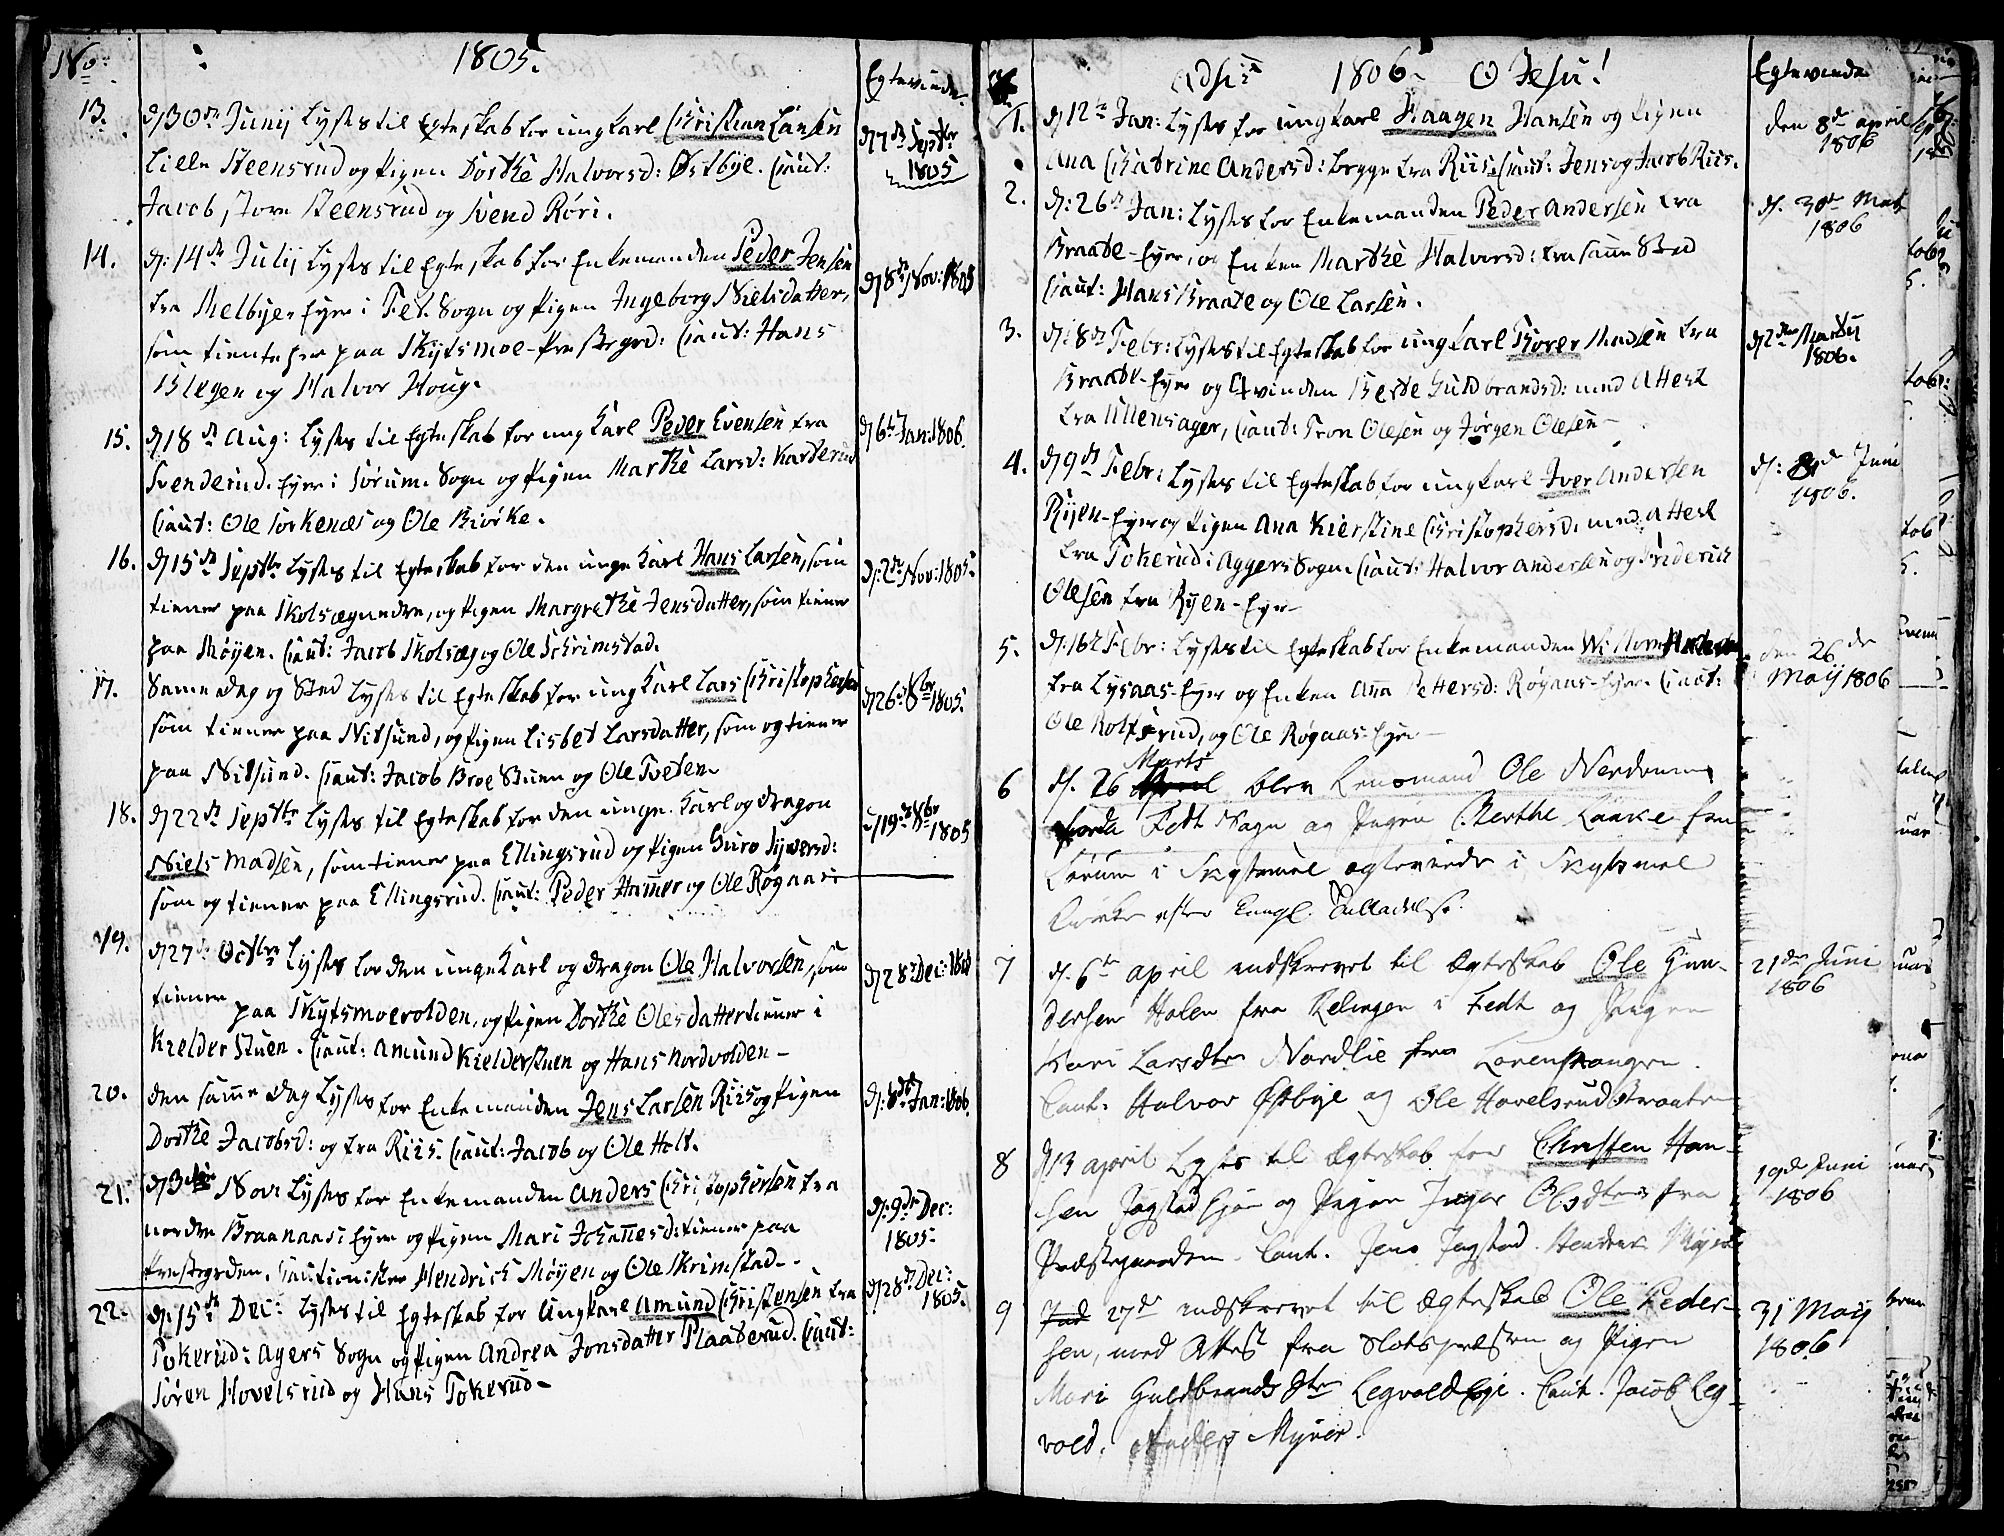 No: 1805. Egtevinde.
13. d: 30te Junij lystes til Egteskab for ungkarl Christian Larsen d: 7de Septbr 1805
lille Steensrud og Pigen Dorthe Halvorsd: Østbye. Caut:
Jacob Store Steensrud og Svend Røri.
14. d: 14de Julij lystes til Egteskab for Enkemanden Peder Jensen d: 8de Nov: 1805
fra Melbye-Eyer i Fet-Sogn og Pigen Ingeborg Nielsdatter,
som tiente her paa Skytsmoe-Prestegrd: Caut: Hans
Blegen og Halvor Houg.
15. d: 18de Aug: lystes til Egteskab for ung Karl Peder Evensen fra d: 6te Jan: 1806.
Svenderud-Eyer i Sørum-Sogn og Pigen Marthe Larsd: Karterud
Caut: Ole Torkenæs og Ole Biørke.
16. d: 15de Septbr lystes til Egteskab for den unge Karl Hans Larsen, som d: 2de Nov: 1805.
tiener paa Skolsægnedre, og Pigen Margrethe Jensdatter, som tiener
paa Møyen. Caut: Jacob Skolsæg og Ole Schrimstad.
17. Samme dag og Sted lystes til Egteskab for ung Karl Lars Christophersen d: 26de 8br 1805.
som tiener paa Nitsund, og Pigen Lisbet Larsdatter, som og tiener
paa Nitsund. Caut: Jacob Broe Stuen og Ole Tveten.
18. d: 22de Septbr lystes til Egteskab for den unge Karl og Dragon d: 19de 8br 1805
Niels Madsen, som tiener paa Ellingsrud og Pigen Guro Syversd:
som og tiener paa Ellingsrud. Caut: Peder Hammer og Ole Røgaas
19. d: 27de Octbr lystes for den unge Karl og Dragon Ole Halvorsen, som d: 28de Dec: 1805
tiener paa Skytsmoevolden, og Pigen Dorthe Olesdatter tiener i
Kielder Stuen. Caut: Amund Kielderstuen og Hans Nordvolden-
20. den samme dag lystes for Enkemanden Jens Larsen Riis og Pigen d: 8de Jan: 1806.
Dorthe Jacobsd: og fra Riis. Caut: Jacob og Ole Holt.
21. d: 3die Nov: lystes for Enkemanden Anders Christophersen fra d: 9de Dec: 1805.
nordre Braanaas-Eyer og Pigen Mari Johannesd: tiener paa
Prestegrden. Cautionister Hendrich Møyen og Ole Skrimstad-
22. d: 15de Dec: lystes til Egteskab for Ungkarl Amund Christensen fra d: 28de Dec: 1805.
Tokerud i Agers Sogn og Pigen Andrea Jonsdatter Plaaterud. Caut:
Søren Hovelsrud og Hans Tokerud-
Adsis 1806. O Jesu! Egteviede
1. d: 12te Jan: lystes for ungkarl Haagen Hansen og Pigen den 8de april 1806
Ana Chatrine Andersd: begge fra Riis. Caut: Jens og Jacob Riis.
2. d: 26de Jan: lystes for Enkemanden Peder Andersen fra d. 30de Mart 1806
Braate-Eyer, og Enken Marthe Halvorsd: fra samme Sted
Caut: Hans Braate og Ole Larsen.
3. d: 8de Febr: lystes til Egteskab for ungkarl Thorer Madsen fra d: 2den Martii 1806.
Braate-Eyer og Qvinden Berte Guldbrandsd: med Attest
fra Ullensager, Caut: Tron Olesen og Jørgen Olesen-
4. d: 9de Febr: lystes til Egteskab for ungkarl Iver Andersen d: de Juni 1806.
Ryen-Eyer og Pigen Ana Kierstine Christophersd: med Attest
fra Tokerud i Aggers Sogn. Caut: Halvor Andersen og Friderich
Olesen fra Ryen-Eyer
5. d: 16de Febr: lystes til Egteskab for Enkemanden Wistorn den 26de May 1806
fra Lysaas-Eyer og Enken Anna Pettersd: Røgaas-Eyer. Caut:
Ole Rolfsrud, og Ole Røgaas-Eyer-
6 d. 26 Marts blev Lensmand Ole Nerdrum
Fedt Sogn og Pigen Berthe Laake fra
Lørum i Skytsmoe egteviede i Skytsmoe
Kirke efter Kongl. Tilladelse.
7 d. 6te april indskrevet til Ægteskab Ole Gun- 21de Juni 1806
dersen Holen fra Relingen i Fedt og Pigen
Kari Larsdtr Nordlie fra Lørenskougen.
Caut: Halvor Østbye og Ole Hovelsrud Braaten
8 d 13 april lystes til Ægteskab for Christen Han- 19de Juni 1806
sen Jogstad Eje og Pigen Inger Olsdtr fra
Præstegaarden. Caut. Jens Jogstad. Hendrich Møyen
9 27de indskrevet til Ægteskab Ole Peder- 31 May 1806
sen, med Attest fra Slotspræsten og Pigen
Mari Guldbrandsdtr Legvold Eje. Caut. Jacob Leg-
vold, Anders Myrer.